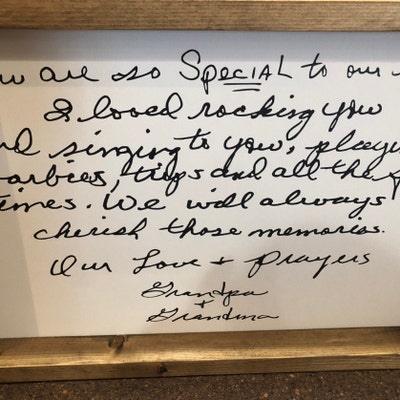 ou are so SPECIAL to our
I loved rocking you
nd singing to you, playi
arbies, trips and all the
times. We will always
cherish those memories.
Our Love + Prayers
Grandpa
+
Grandma